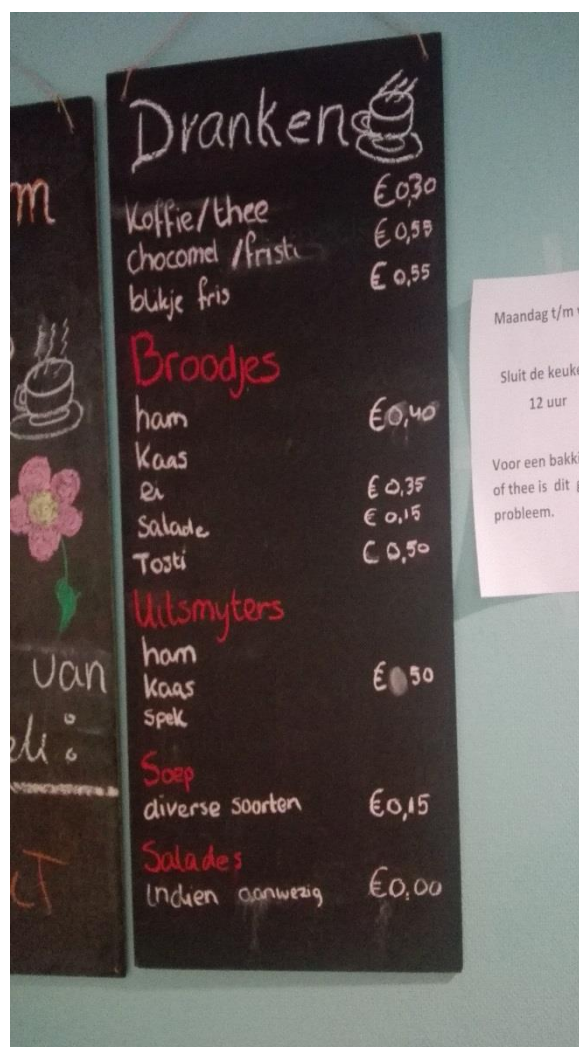 m
van
Dranken
Koffie/thee €0,30
chocomel /fristi €0,55
blikje fris €0,55
Broodjes
ham €0,40
Kaas
ei €0,35
Salade €0,15
Tosti €0,50
Uitsmyters
ham
kaas € 50
spek
Soep
diverse soorten €0,15
Salades
Indien aanwezig €0.00
Maandag t/m
Sluit de keuke
12 uur
Voor een bakki
of thee is dit
probleem.